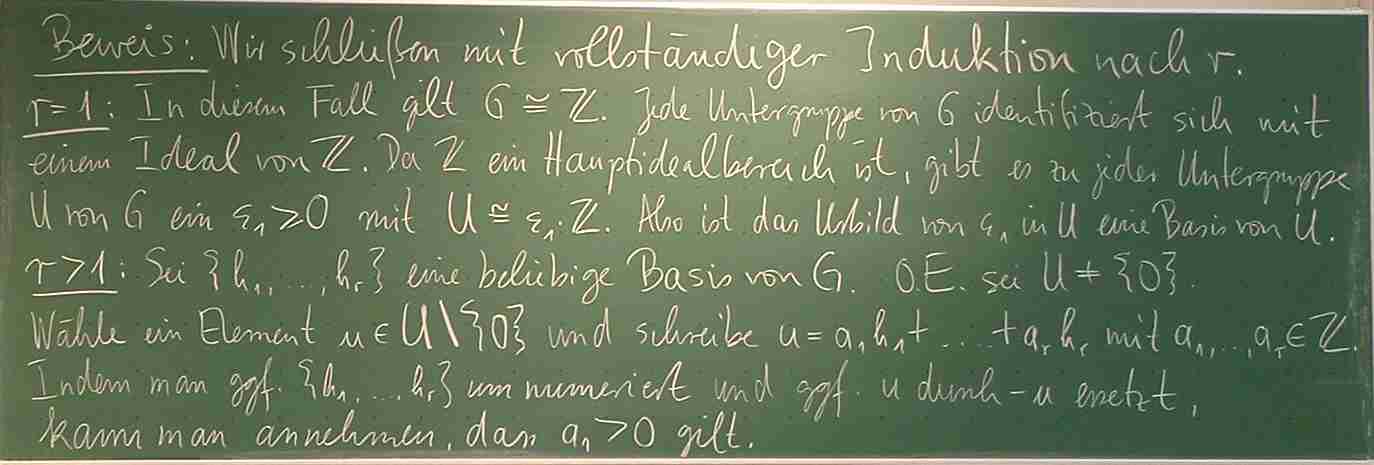 Beweis: Wir schließen mit vollständiger Induktion nach r.
r=1: In diesem Fall gilt G ≅ ℤ. Jede Untergruppe von G identifiziert sich mit
einem Ideal von ℤ. Da ℤ ein Hauptidealbereich ist, gibt es zu jeder Untergruppe
U von G ein ε₁≥0 mit U ≅ ε₁·ℤ. Also ist das Urbild von ε₁ in U eine Basis von U.
r>1: Sei {h₁,...,hᵣ} eine beliebige Basis von G. O.E. sei U ≠ {0}.
Wähle ein Element u ∈ U\{0} und schreibe u = a₁h₁+...+aᵣhᵣ mit a₁,...,aᵣ∈ℤ.
Indem man ggf. {h₁,...,hᵣ} umnumeriert und ggf. u durch -u ersetzt,
kann man annehmen, dass a₁>0 gilt.